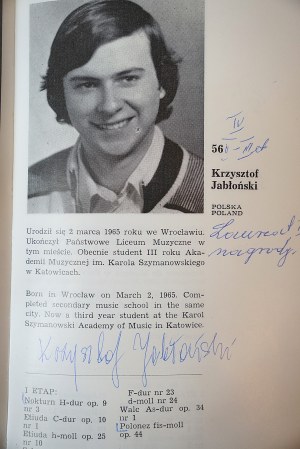 IV
56 II–III et
Krzysztof
Jabłoński
POLSKA
POLAND
Laureat!
nagrody.
Urodził się 2 marca 1965 roku we Wrocławiu.
Ukończył Państwowe Liceum Muzyczne w
tym mieście. Obecnie student III roku Aka-
demii Muzycznej im. Karola Szymanowskiego
w Katowicach.
Born in Wrocław on March 2, 1965. Com-
pleted secondary music school in the same
city. Now a third year student at the Karol
Szymanowski Academy of Music in Katowice.
Krzysztof Jabłoński
1 ETAP:
Noktarn H-dur op. 9
nr 3
Etiuda C-dur op. 10
nr 1
Etiuda h-moll op. 25
nr 10
F-dur nr 23
d-moll nr 24
Walc As-dur op. 34
nr 1
Polonez fis-moll
op. 44